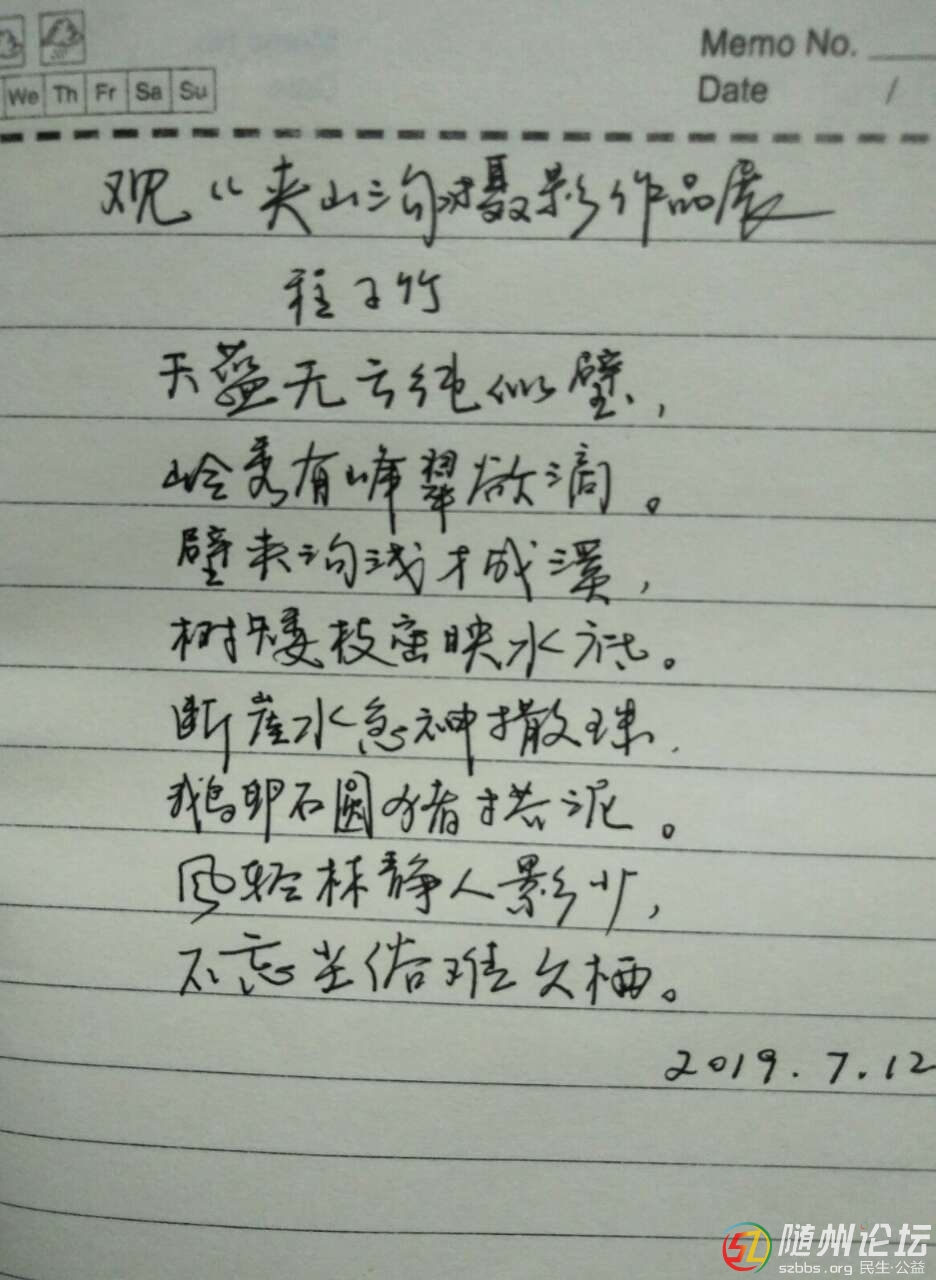 Memo No.
We Th Fr Sa Su
Date /
观“夹山沟摄影作品展
程子竹
天蓝无云纯似璧，
岭秀有峰翠欲滴。
壁夹沟浅才成溪，
树矮枝密映水。
断崖水急神撒珠，
鹅卵石圆猪泥。
风轻林静人影少，
不忘尘俗难久栖。
2019.7.12
随州论坛
szbbs.org 民生·公益